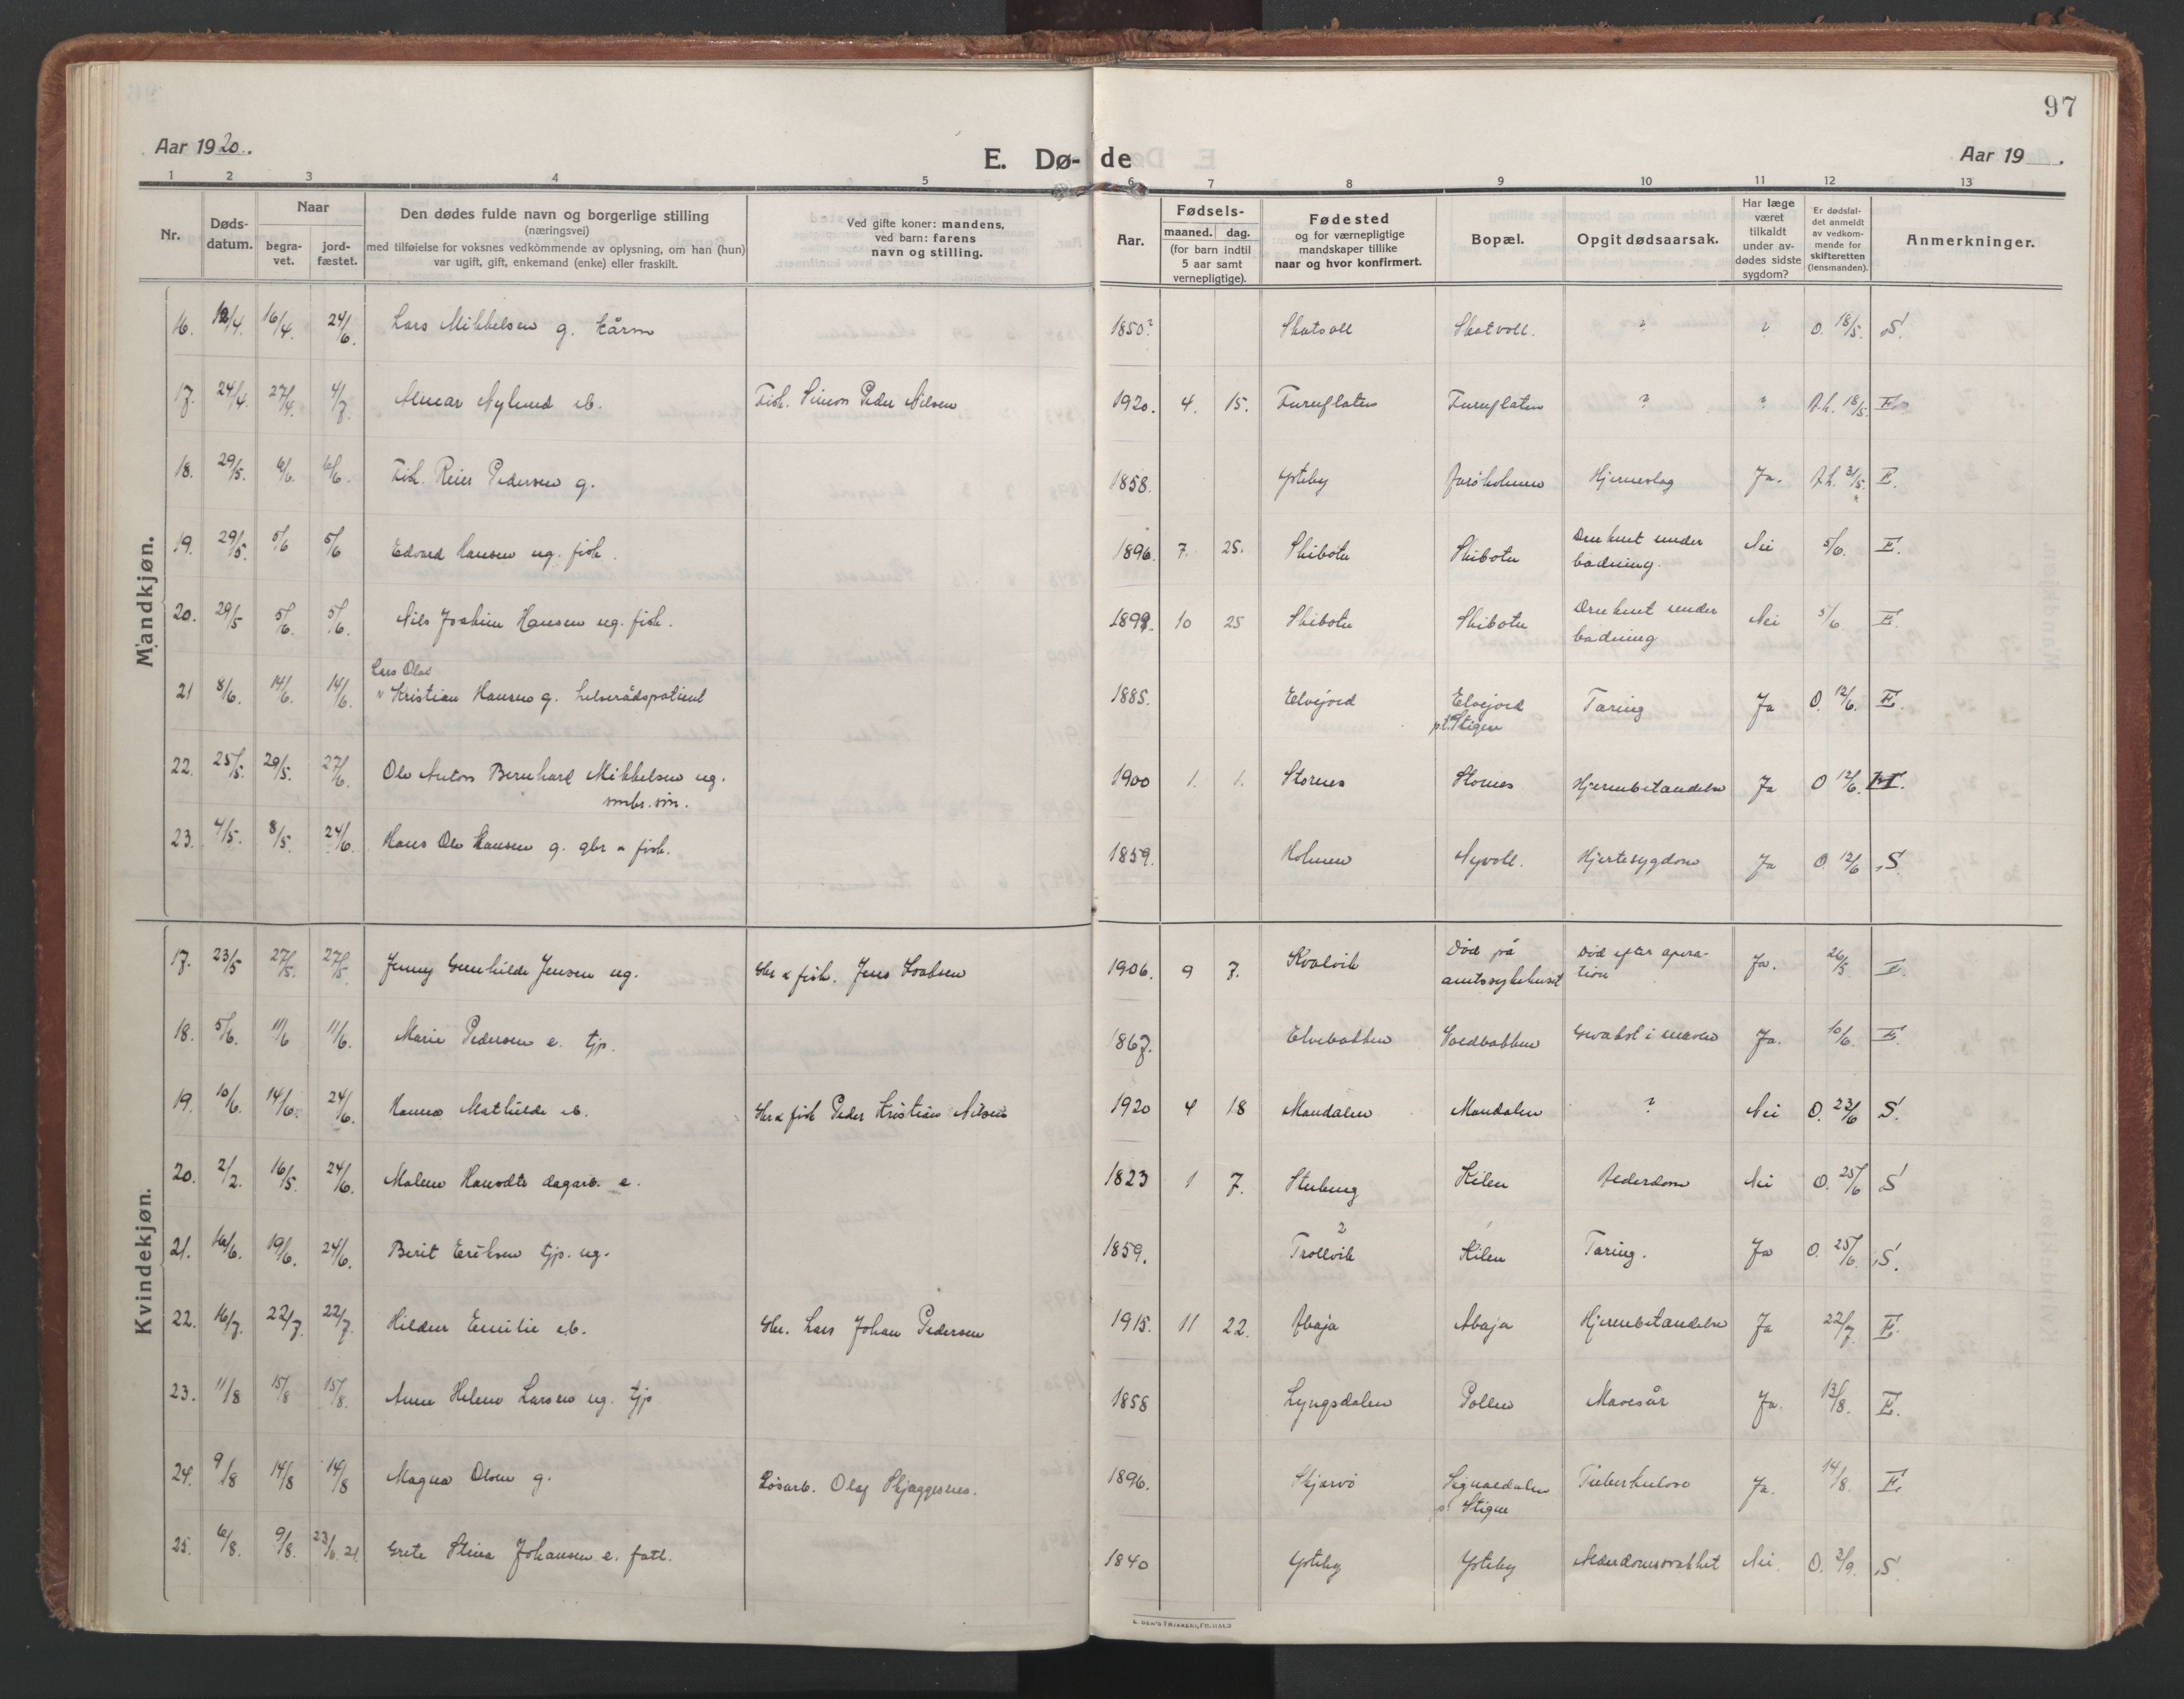 97
Aar 1920.
E. Dø- de
Aar 19 .
1 2 3 4 5 6 7 8 9 10 11 12 13
Nr.
Døds-
datum.
Naar
begra-
vet.
jord-
fæstet.
Den dødes fulde navn og borgerlige stilling
(næringsvei)
med tilføielse for voksnes vedkommende av oplysning, om han (hun)
var ugift, gift, enkemand (enke) eller fraskilt.
Ved gifte koner: mandens,
ved barn: farens
navn og stilling.
Aar.
Fødsels-
maaned. dag.
(for barn indtil
5 aar samt
vernepligtige).
Fødested
og for værnepligtige
mandskaper tillike
naar og hvor konfirmert.
Bopæl.
Opgit dødsaarsak.
Har læge
været
tilkaldt
under av-
dødes sidste
sygdom?
Er dødsfal-
det anmeldt
av vedkom-
mende for
skifteretten
(lensmanden).
Anmerkninger.
Mandkjøn.
16. 12/4. 16/4. 24/6. Lars Mikkelsen g. 1850? Skatvoll Skatvoll. ? ? O. 18/5. S.
17. 24/4. 27/4. 4/7. Almar Nylund eb. Fisk. Simon Peder Nilsen 1920. 4. 15. Furuflaten Furuflaten ? ? A.h. 18/5. F.
18. 29/5. 6/6. 6/6. Fisk. Reier Pedersen g. 1858. Ysteby Hjerneslag Ja. A.h. 3/5. F.
19. 29/5. 5/6 5/6 Edvard Hansen ug. fisk. 1896. 7. 25. Skibotn Skibotn Druknet under
badning. Nei 5/6. F.
20. 29/5 5/6. 5/6. Nils Joakim Hansen ug. fisk. 1899. 10 25 Skibotn Skibotn Druknet under
badning Nei 5/6. F.
Lars Olai
21 8/6. 14/6. 14/6. Kristian Hansen g. helserådspatient 1885. Elvejord Elvejord
pt. Stigen Tæring Ja O. 12/6. F.
22. 25/5. 29/5. 27/6. Ole Anton Bernhard Mikkelsen ug.
smbr. søn. 1900 1. 1. Stornes Stornes Hjernebetændelse Ja O 12/6. F.
23. 4/5. 8/5. 24/6. Hans Ole Hansen g. gbr & fisk. 1859. Holmen Nyvoll. Hjertesygdom Ja O. 12/6 S.
Kvindekjøn.
17. 23/5 27/5. 27/5. Jenny Gunhilde Jensen ug. Gbr & fisk. Jens Isaksen 1906. 9 7. Kvalvik Død på
amtssykehuset Død efter opera-
tion Ja. 26/5. F.
18. 5/6. 11/6 11/6. Marie Pedersen e. tjp. 1867. Elvebakken Svedbakken i maven Ja. 10/6. F.
19. 10/6. 14/6. 24/6. Hanna Mathilde eb. Gbr & fisk Peder Kristian Nilsen 1920 4 18 Mandalen Mandalen ? Nei O. 23/6 S.
20. 2/2. 16/5. 24/6. Malene Hansdtr dagarb. e. 1823 1 7. Kilen Alderdom Nei O. 25/6 S
21. 16/6. 19/6. 24/6. Berit Eriksen tjp. ug. 1859. Trollvik ? Kilen Tæring. Ja O. 25/6. S.
22. 16/7. 22/7. 22/7. Hildur Emilie eb. Gbr. Lars Johan Pedersen 1915. 11 22. Abaja Abaja Hjernebetændelse Ja 22/7. F.
23. 11/8 15/8 15/8. Anne Helene Larsen ug. tjp 1858 Lyngsdalen Pollen Mavesår Ja. 13/8. F.
24. 9/8 14/8 14/8 Magna Olsen g. Løsarb. Olaf Skjæggesnes. 1896. Skjervø Signaldalen
p. Stigen Tuberkulose Ja. 14/8. F.
25. 6/8. 9/8. 23/6. 21. Grete Stina Johansen e. fatt. 1840 Ysteby Ysteby Alderdomssvakhet Nei. O. 3/9. S.